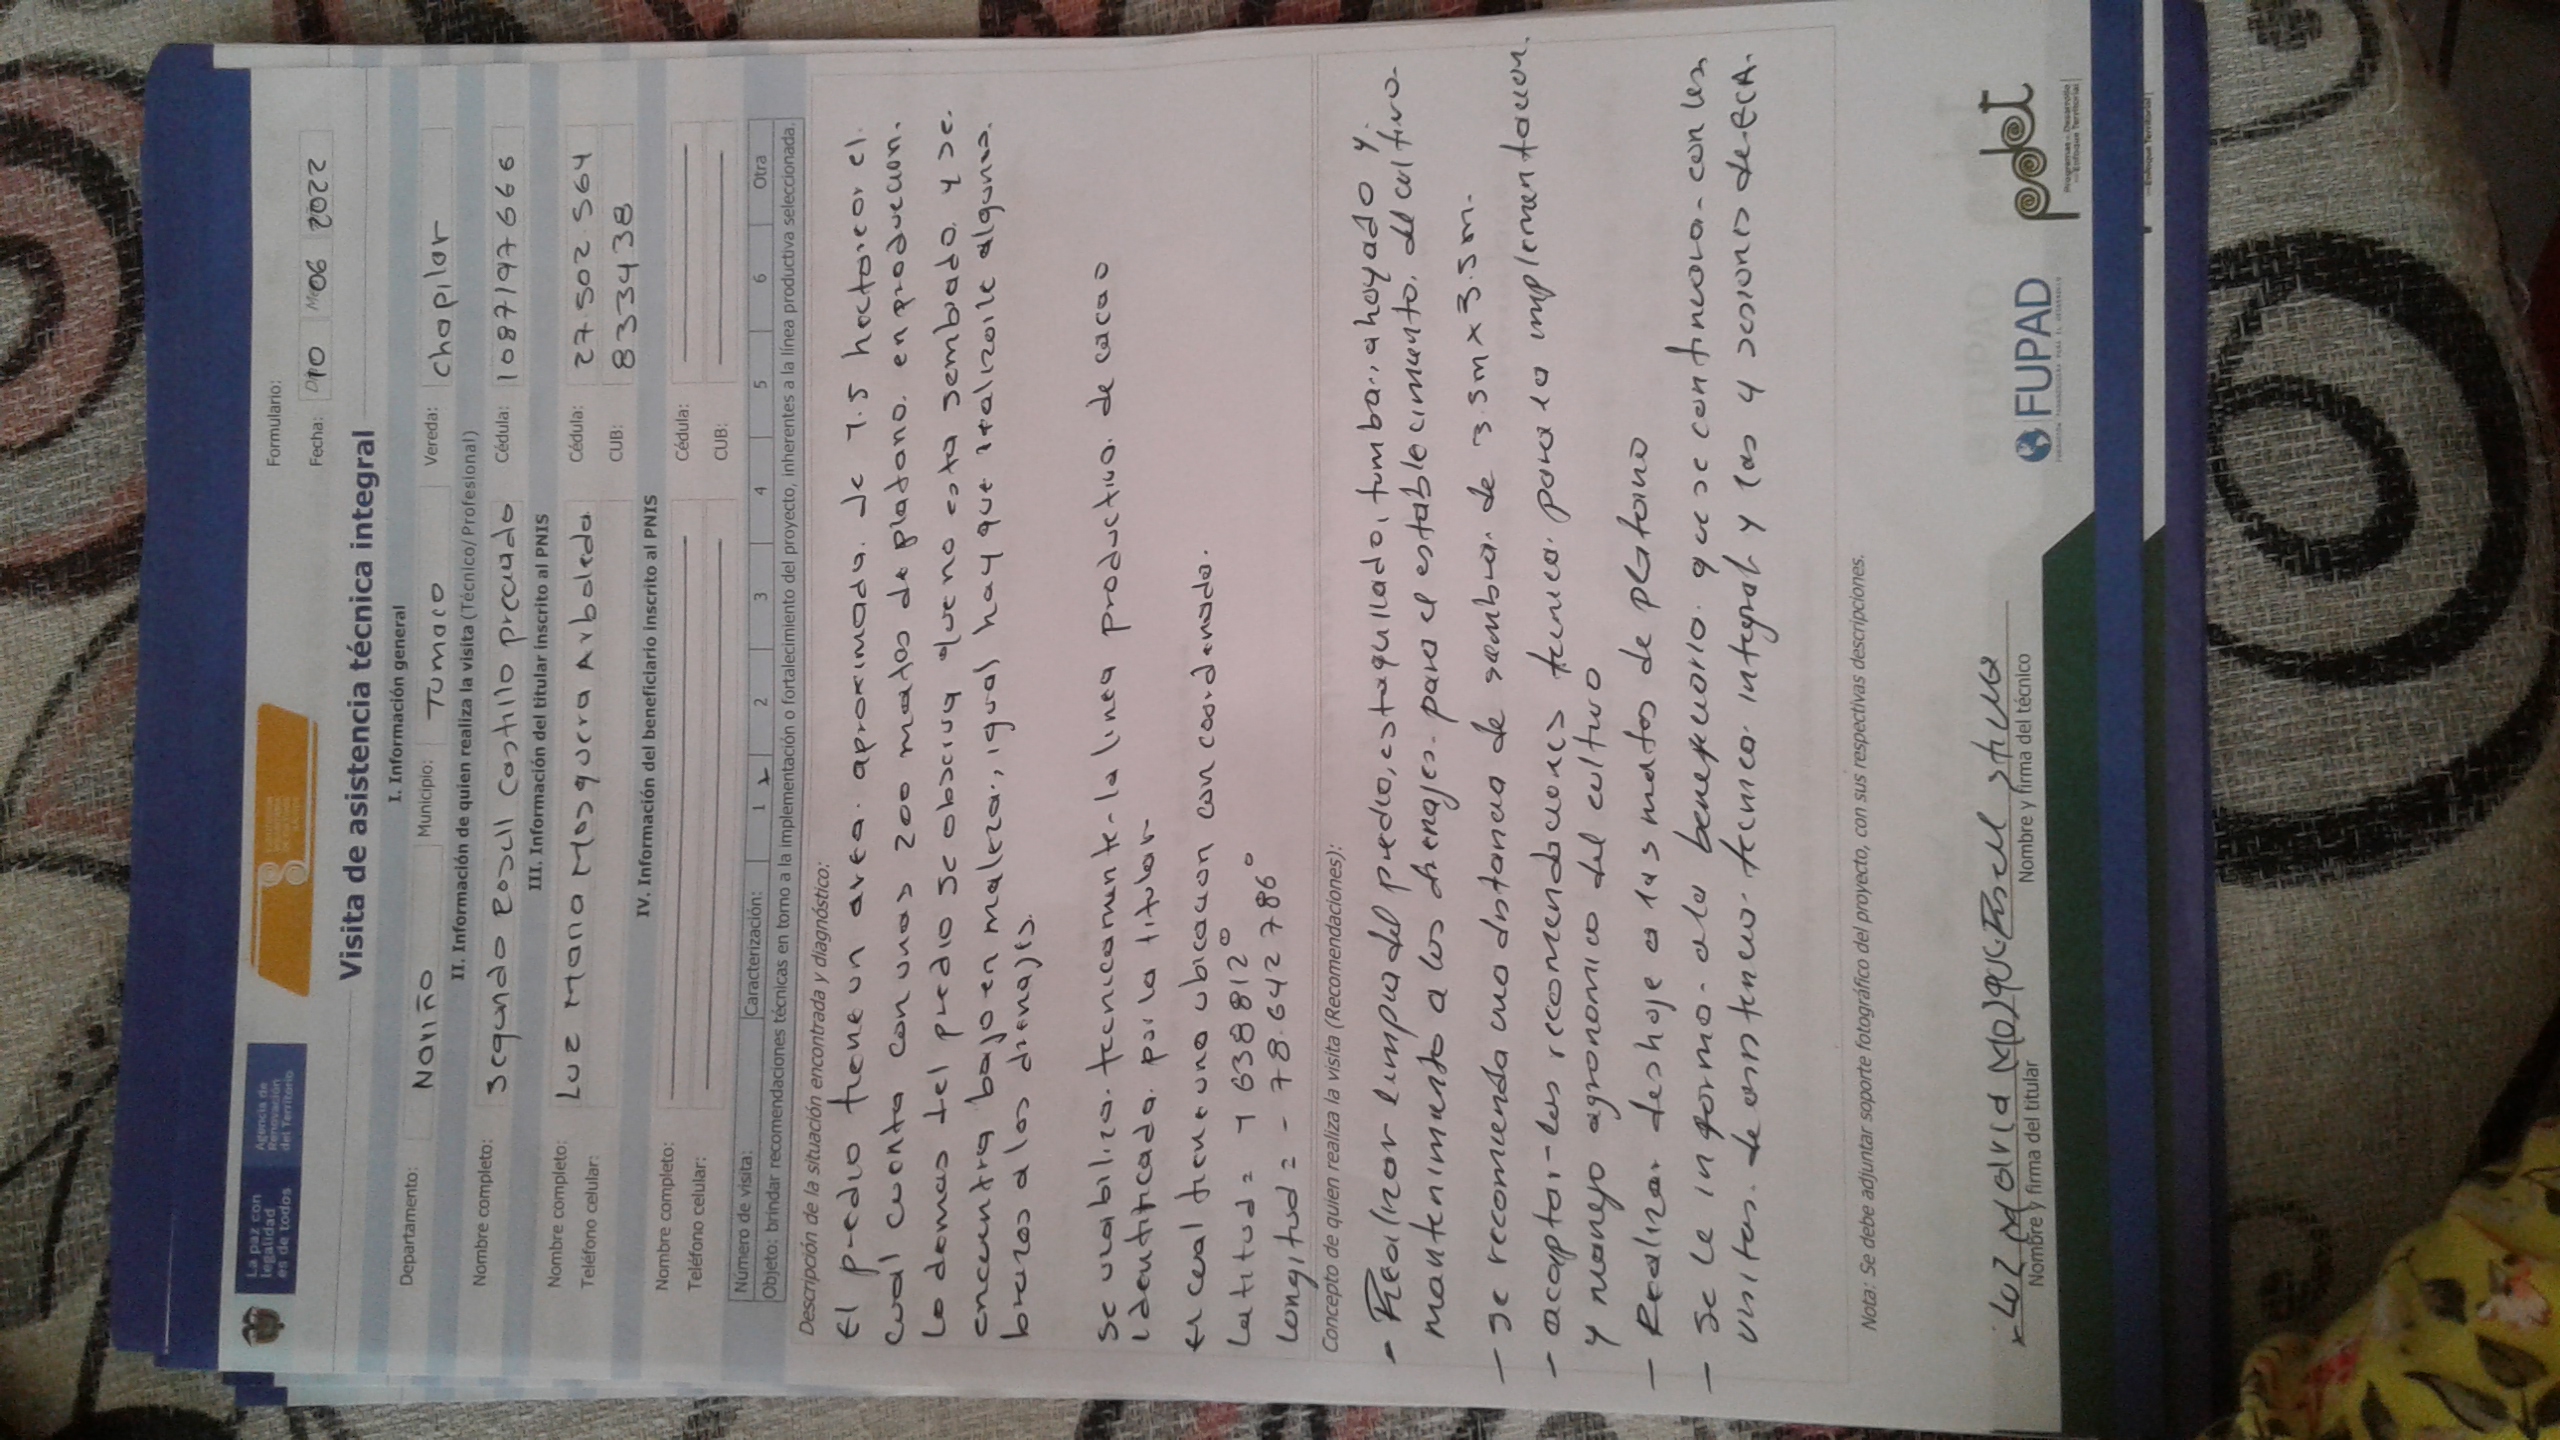 La paz con
legalidad
es de todos
Agencia de
Renovación
del Territorio
Formulario:
Fecha: 10 06 2022
Visita de asistencia técnica integral
I. Información general
Departamento: Nariño Municipio: Tumaco Vereda: chapilar
II. Información de quien realiza la visita (Técnico/Profesional)
Nombre completo: Segundo Rosell castillo preciado Cédula: 1087197666
III. Información del titular inscrito al PNIS
Nombre completo: Luz Maria Mosquera Arboleda Cédula: 27502564
Teléfono celular: CUB: 833438
IV. Información del beneficiario inscrito al PNIS
Nombre completo: Cédula:
Teléfono celular: CUB:
Número de visita: Caracterización: 1 x 2 3 4 5 6 Otra
Objeto: brindar recomendaciones técnicas en torno a la implementación o fortalecimiento del proyecto, inherentes a la línea productiva seleccionada.
Descripción de la situación encontrada y diagnóstico:
El predio tiene un area. aproximada. de 1.5 hectarear el.
cual cuenta con unas 200 matas de platano. en produccion.
Lo demas del predio se observa que no esta sembrado. y se.
encuentra bajo en maleza., igual hay que realizarle algunos.
brazos a los drenajes.
Se viabiliza. tecnicamente. la linea productiva. de cacao
identificada. por la titular
el cual tiene una ubicacion con coordenada.
Latitud = 1 638812°
Longitud = - 78.6427786°
Concepto de quien realiza la visita (Recomendaciones):
- Realizar limpia del predio, estaquillado, tumba., ahoyado y.
mantenimiento a los drenajes. para el establecimiento. del cultivo.
- Se recomienda una distancia de siembra. de 3.5m x 3.5m.
- acoptar. las recomendaciones tecnica. para la implementacion.
y manejo agronomico del cultivo
- Realizar deshoje a las matas de platano
- Se le informo. a la beneficiario. que se continuara. con las
visitas. de asistencia. tecnica. integral. y las 4 sesiones de ECA.
Nota: Se debe adjuntar soporte fotográfico del proyecto, con sus respectivas descripciones.
Luz Maria Mosquera
Nombre y firma del titular
Nombre y firma del técnico
FUPAD
pdet
Programas de Desarrollo
con Enfoque Territorial